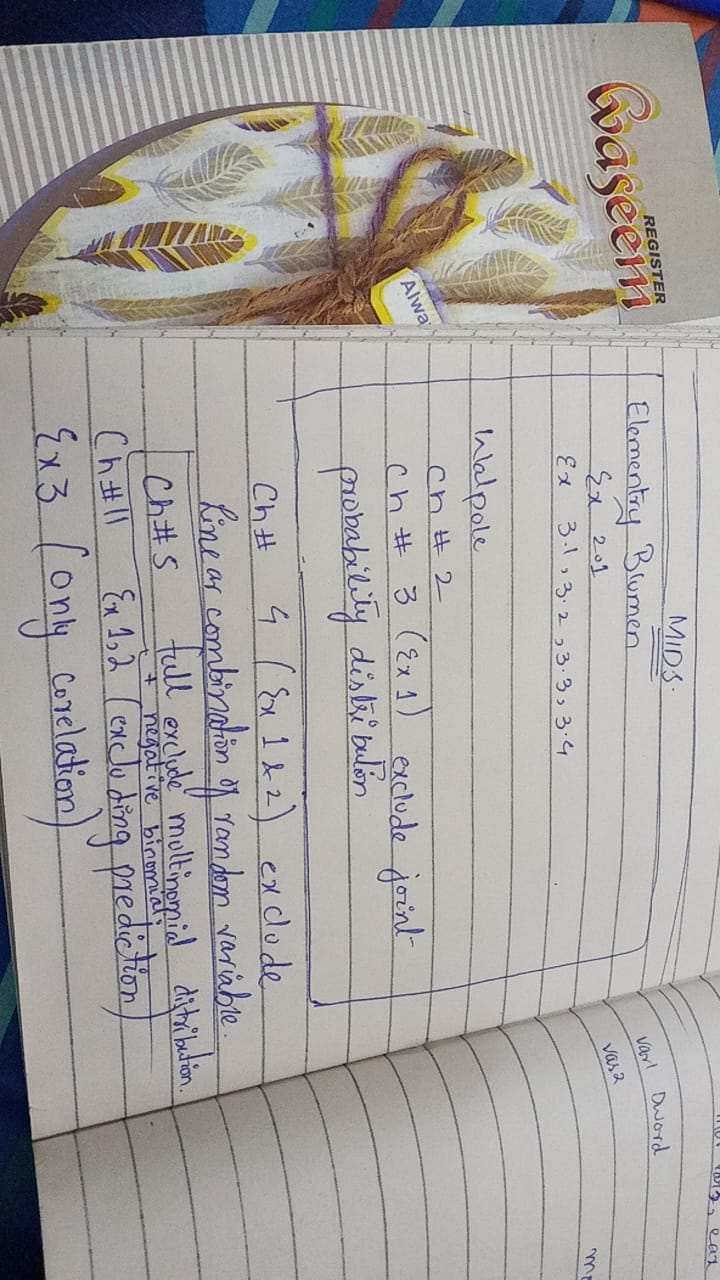 REGISTER
Waseem
Alwa
MIDS.
Elementry Blumen
Ex 2.1
Ex 3.1, 3.2, 3.3, 3.4
Walpole
Ch # 2
Ch # 3 (Ex 1) exclude joint
probability distribution
Ch# 4 (Ex 1 & 2) exclude
linear combination of random variable.
Ch#5 full exclude multinomial distribution.
+ negative binomial.
Ch#11 Ex 1,2 (excluding prediction)
Ex3 (only corelation)
var1 Dword
var2